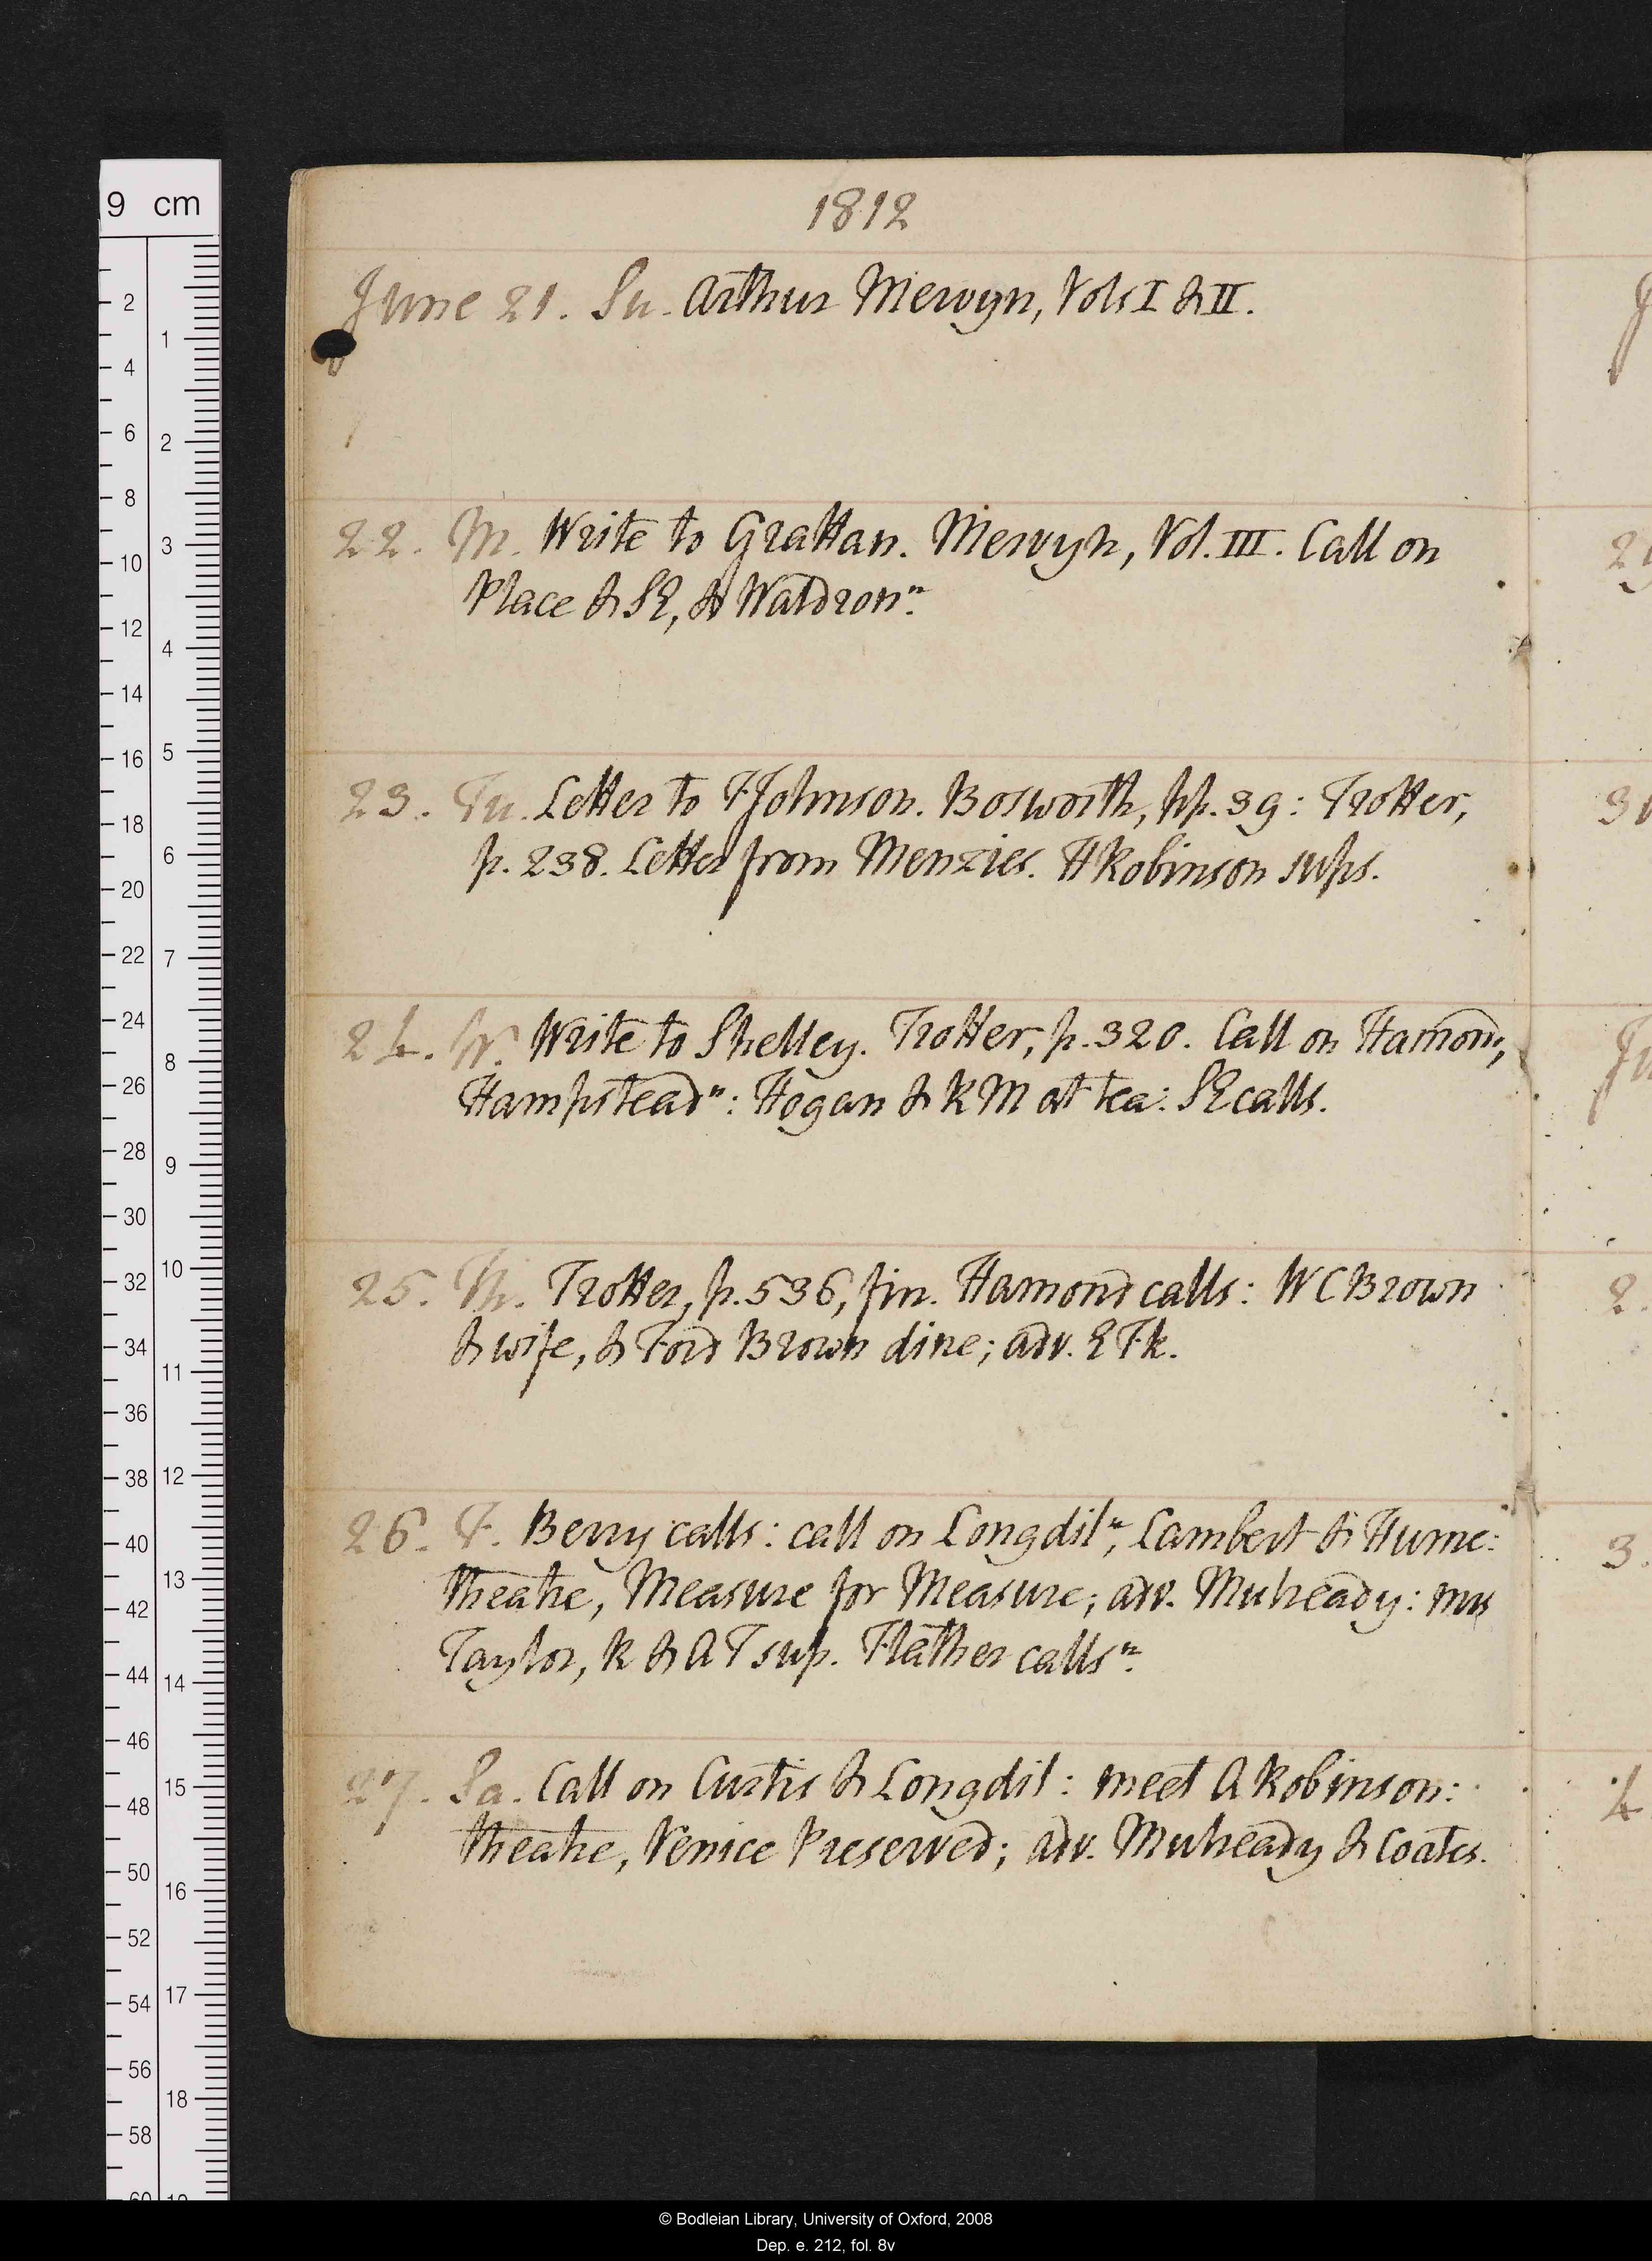 1812
June 21. Su. Arthur Mervyn, Vols I & II.
22. M. Write to Grattan. Mervyn, Vol. III. Call on
Place & SE, & Waldron n.
23. Tu. Letter to Johnson. Bosworth, pp. 39: Trotter,
p. 238. Letter from Menzies. H Robinson sups.
24. W. Write to Shelley. Trotter, p. 320. Call on Hamond,
Hampstead n: Hogan & K M at tea: SE calls.
25. Th. Trotter, p. 536, fin. Hamond calls: W C Brown
& wife, & Ford Brown dine; adv. E Fk.
26. F. Berry calls: call on Longdil n, Lambert & Hume:
theatre, Measure for Measure; adv. Mulready: Mrs
Taylor, K & A T sup. Flather calls n.
27. Sa. Call on Curtis & Longdil: meet A Robinson:
theatre, Venice Preserved; adv. Mulready & Coates.
9 cm
2
4
6
8
10
12
14
16
18
20
22
24
26
28
30
32
34
36
38
40
42
44
46
48
50
52
54
56
58
1
2
3
4
5
6
7
8
9
10
11
12
13
14
15
16
17
18
© Bodleian Library, University of Oxford, 2008
Dep. e. 212, fol. 8v